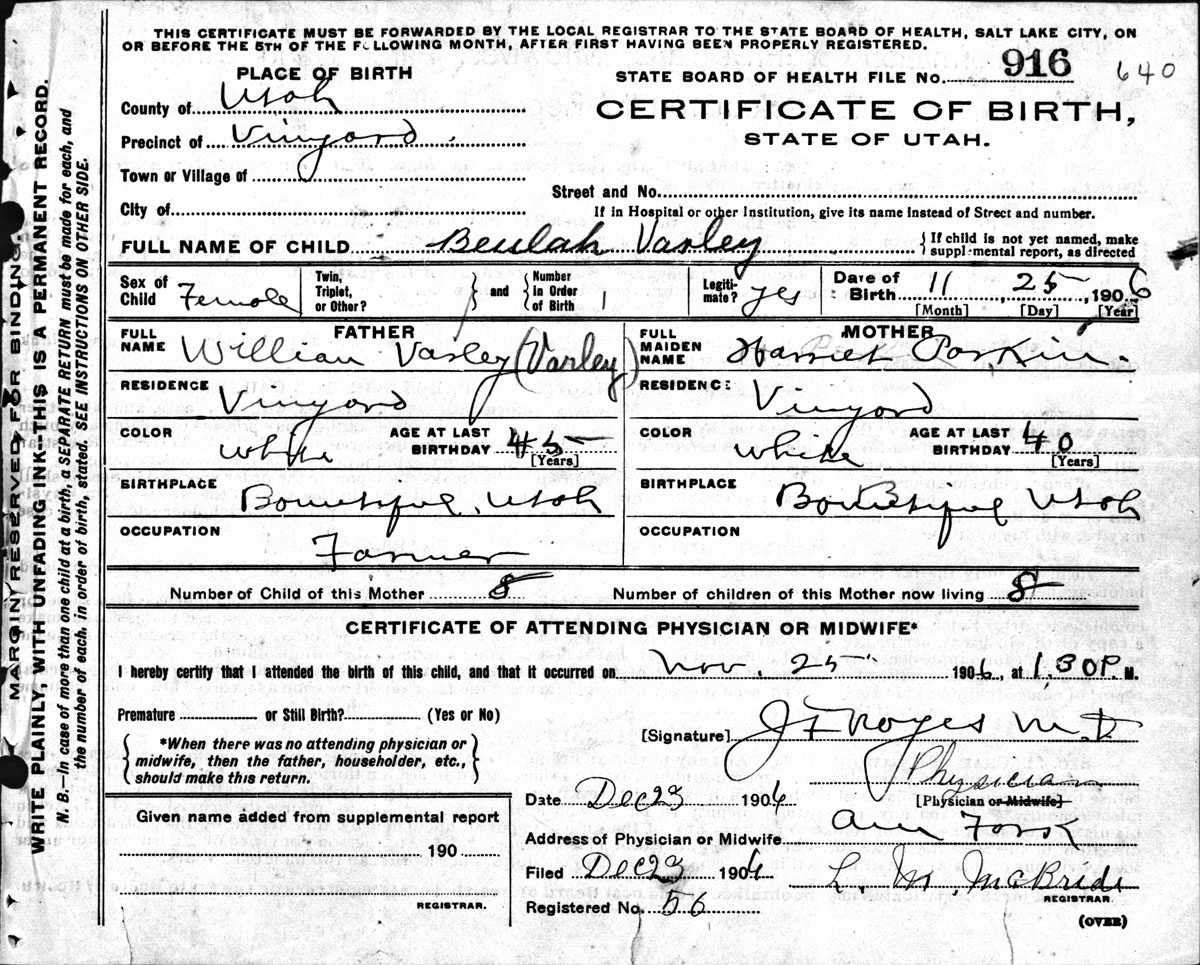 THIS CERTIFICATE MUST BE FORWARDED BY THE LOCAL REGISTRAR TO THE STATE BOARD OF HEALTH, SALT LAKE CITY, ON
OR BEFORE THE 5TH OF THE FOLLOWING MONTH, AFTER FIRST HAVING BEEN PROPERLY REGISTERED.
MARGIN RESERVED FOR BINDING
WRITE PLAINLY, WITH UNFADING INK—THIS IS A PERMANENT RECORD.
N. B.—In case of more than one child at a birth, a SEPARATE RETURN must be made for each, and
the number of each, in order of birth, stated. SEE INSTRUCTIONS ON OTHER SIDE.
PLACE OF BIRTH
County of Utah
Precinct of Vinyard.
Town or Village of
City of
STATE BOARD OF HEALTH FILE NO. 916 640
CERTIFICATE OF BIRTH,
STATE OF UTAH.
Street and No.
If in Hospital or other Institution, give its name instead of Street and number.
FULL NAME OF CHILD Beulah Varley
{ If child is not yet named, make
supplemental report, as directed
Sex of Child Female
Twin, Triplet, or Other? } and { Number in Order of Birth 1
Legitimate? yes
Date of Birth 11 , 25 , 1906
[Month] [Day] [Year]
FATHER
FULL NAME Willian Varley (Varley)
RESIDENCE Vinyard
COLOR white AGE AT LAST BIRTHDAY 45
[Years]
BIRTHPLACE Bountiful, Utah
OCCUPATION Farmer
MOTHER
FULL MAIDEN NAME Harriet Parkin.
RESIDENCE: Vinyard
COLOR white AGE AT LAST BIRTHDAY 40
[Years]
BIRTHPLACE Bountiful Utah
OCCUPATION
Number of Child of this Mother 8 Number of children of this Mother now living 8
CERTIFICATE OF ATTENDING PHYSICIAN OR MIDWIFE*
I hereby certify that I attended the birth of this child, and that it occurred on Nov. 25 1906, at 1.30 P. M.
Premature or Still Birth? (Yes or No)
{ *When there was no attending physician or
midwife, then the father, householder, etc.,
should make this return. }
[Signature] J F Noyes M. D
Physician
[Physician or Midwife]
Date Dec 23 1906
Address of Physician or Midwife Am Fork
Filed Dec 23 1906 L. M. McBride
REGISTRAR.
Registered No. 56
(OVER)
Given name added from supplemental report
190
REGISTRAR.